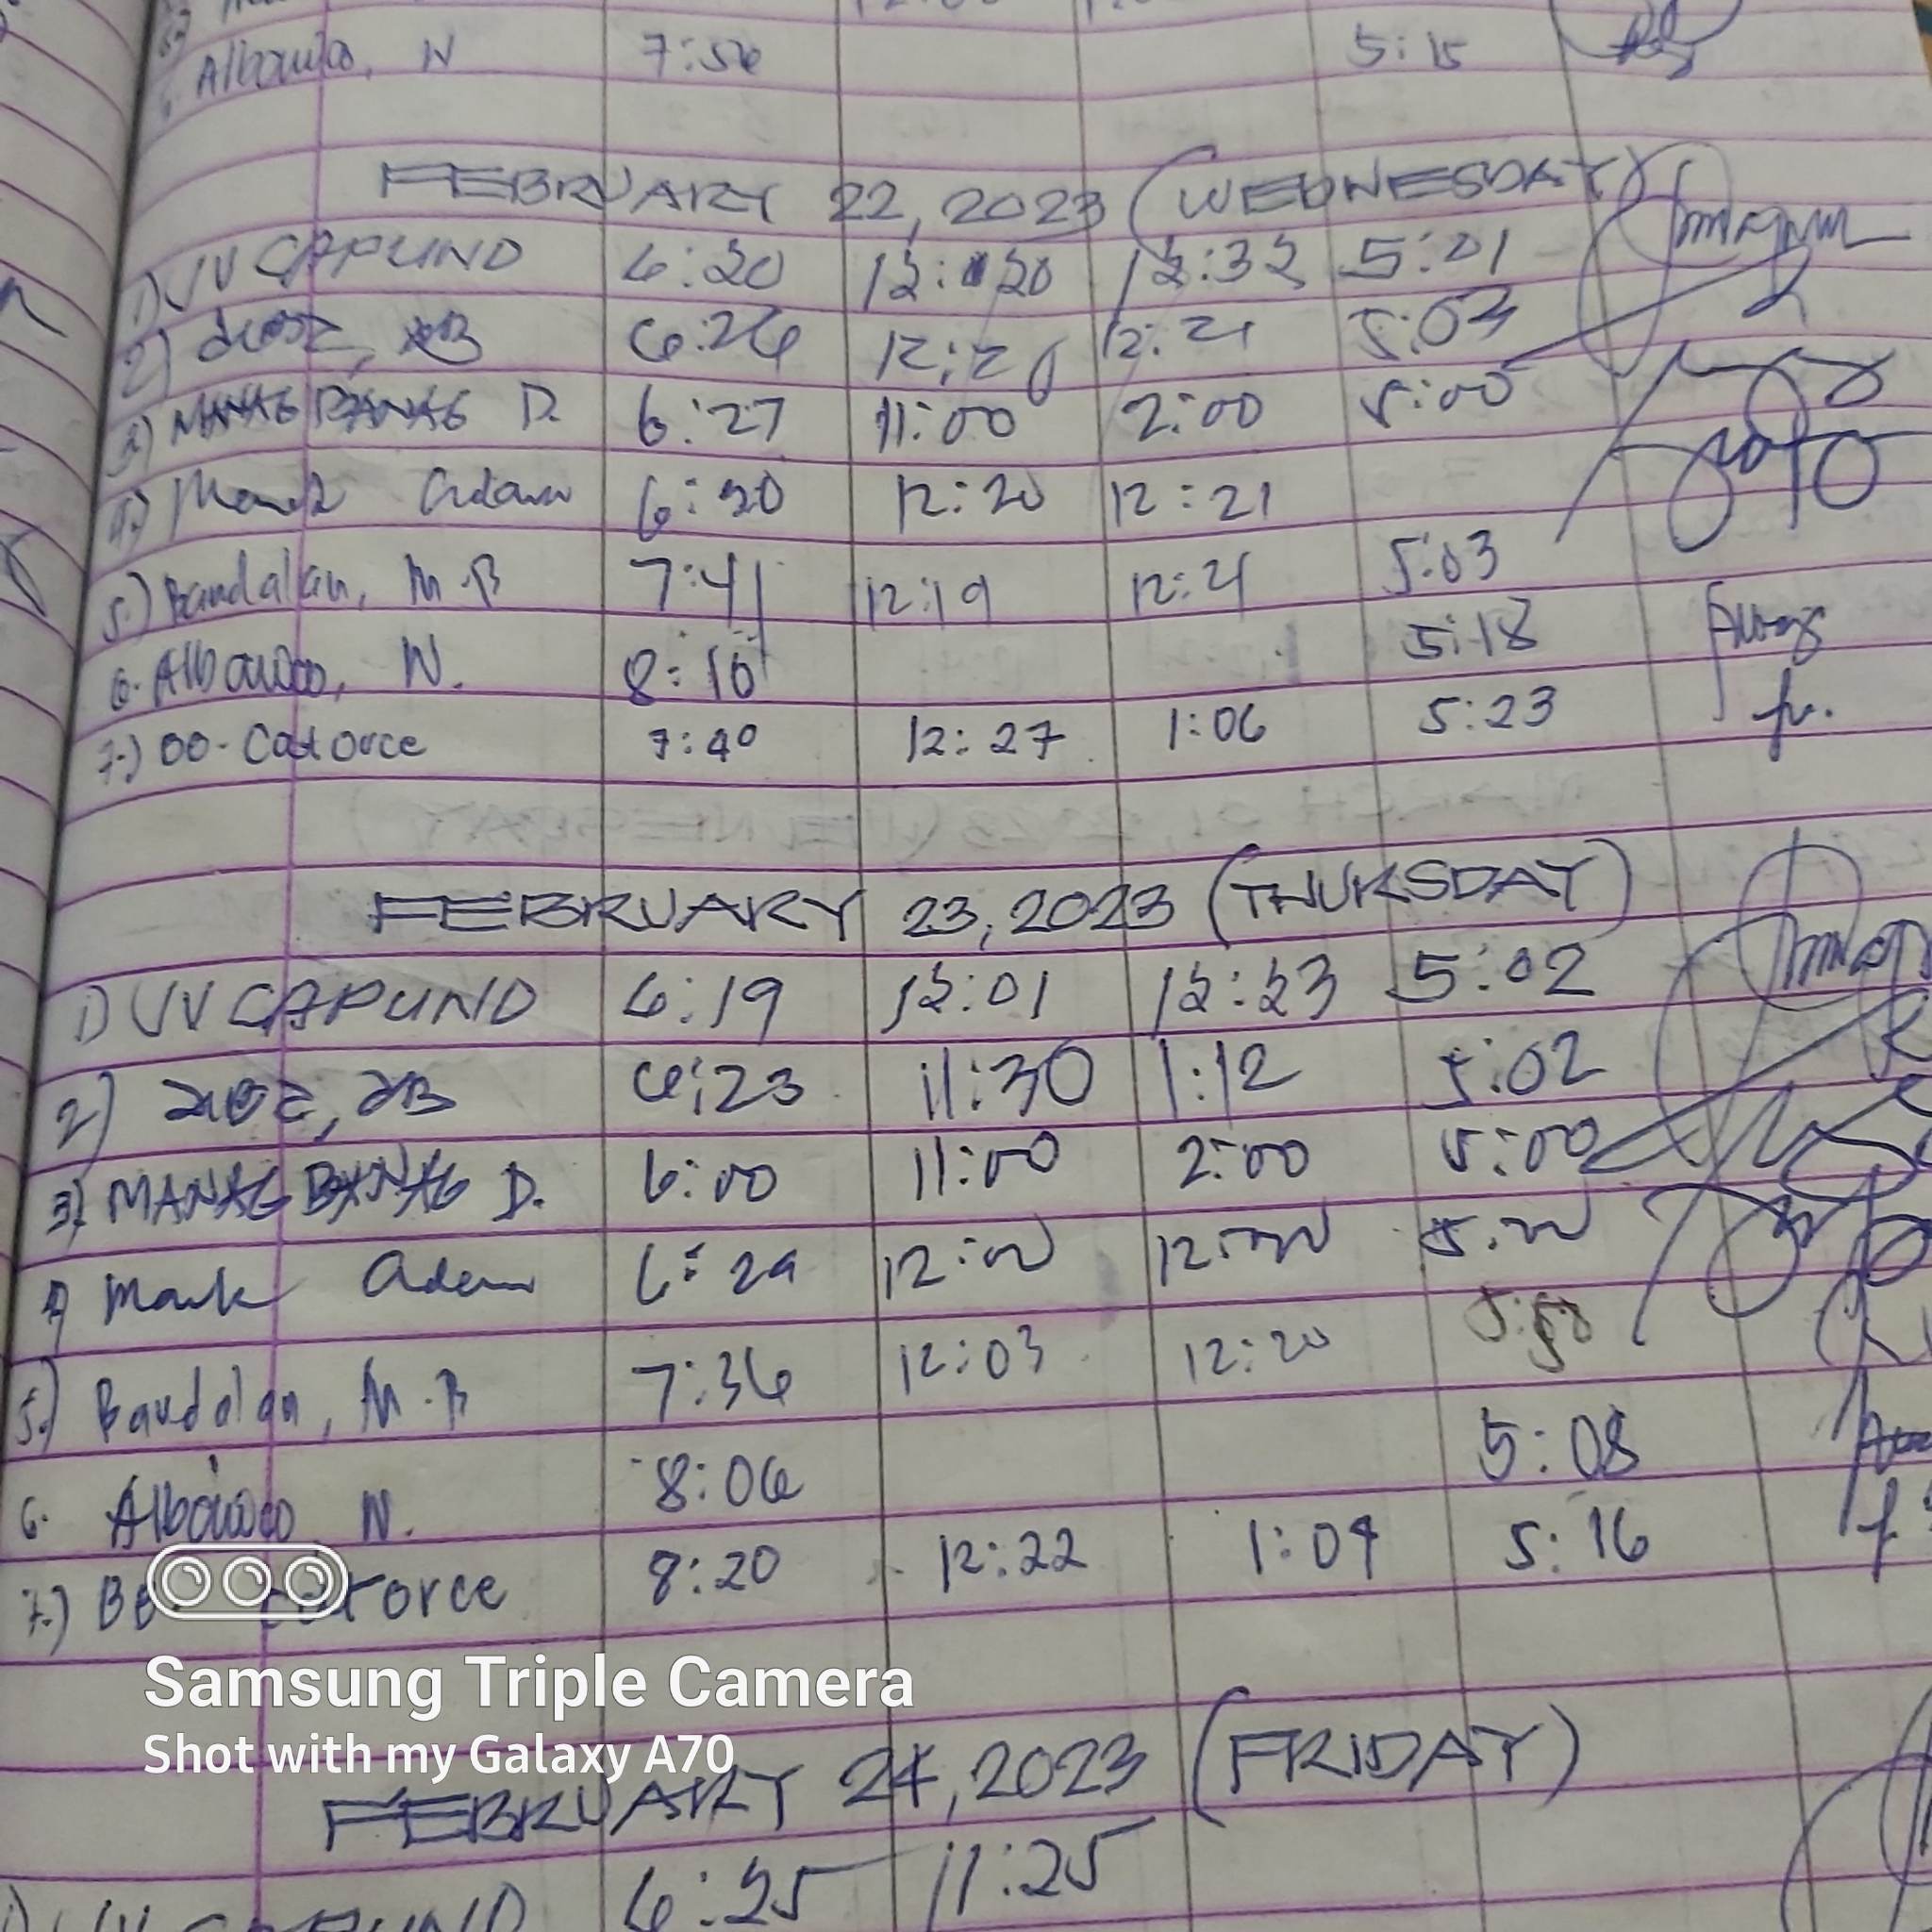 N 7:56 5:15
FEBRUARY 22, 2023 (WEDNESDAY)
1) VV CAPUNO 6:20 12:20 12:32 5:01
2) 6:26 12:20 12:21 5:03
3) MANAG BANAG D. 6:27 11:00 2:00 5:00
4) Mark Adam 6:20 12:20 12:21
5.) Bandalan, M.B 7:41 12:19 12:21 5:03
6. N. 8:10 5:18
7.) Catorce 7:40 12:27 1:06 5:23
FEBRUARY 23, 2023 (THURSDAY)
1) VV CAPUNO 6:19 12:01 12:23 5:02
2) 6:23 11:30 1:12 5:02
3) MANAG BANAG D. 6:00 11:00 2:00 5:00
4) Mark Adam 6:29 12:00
5.) Bandalan, M.B 7:36 12:03 12:20
6. N. 8:06 5:08
7.) Catorce 8:20 12:22 1:04 5:16
Samsung Triple Camera
Shot with my Galaxy A70
FEBRUARY 24, 2023 (FRIDAY)
1) VV CAPUNO 6:25 11:25